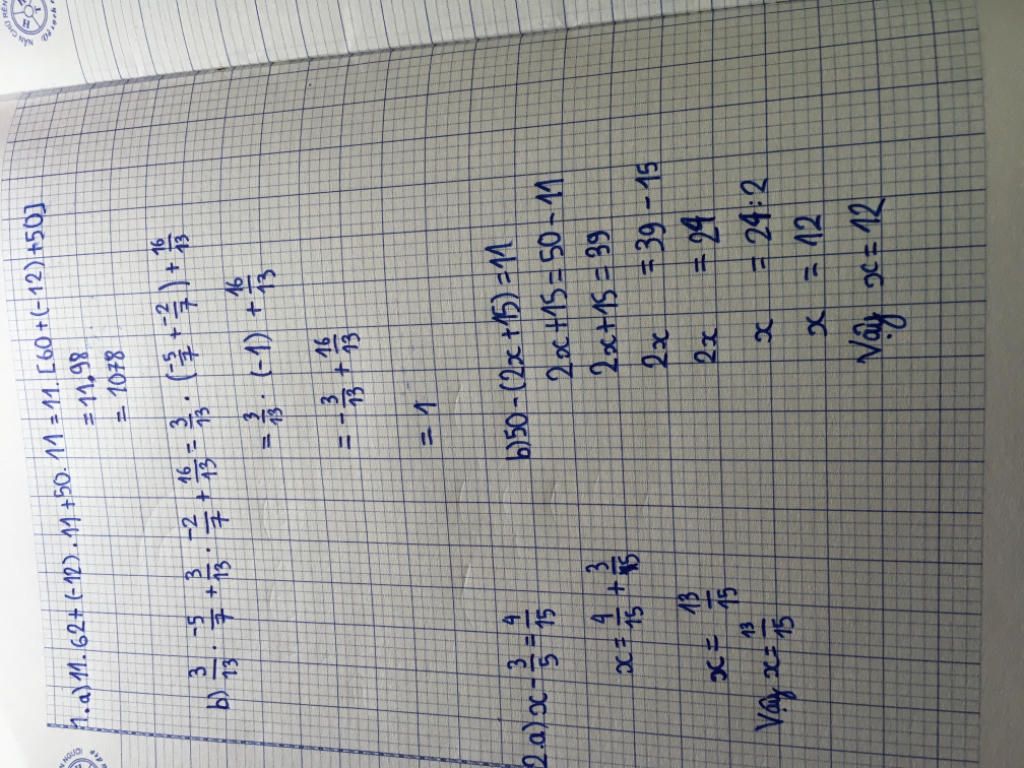 1. a) 11 . 62 + (-12) . 11 + 50 . 11 = 11 . [60 + (-12) + 50]
= 11 . 98
= 1078
b) 3/13 . -5/7 + 3/13 . -2/7 + 16/13 = 3/13 . (-5/7 + -2/7) + 16/13
= 3/13 . (-1) + 16/13
= -3/13 + 16/13
= 1
2 a) x - 3/5 = 4/15
x = 4/15 + 3/15
x = 13/15
Vậy x = 13/15
b) 50 - (2x + 15) = 11
2x + 15 = 50 - 11
2x + 15 = 39
2x = 39 - 15
2x = 24
x = 24 : 2
x = 12
Vậy x = 12